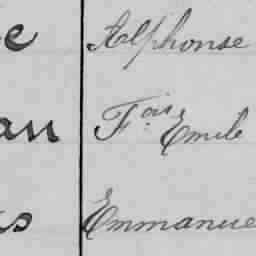 e Alphonse
an F.ois Emile
as Emmanue